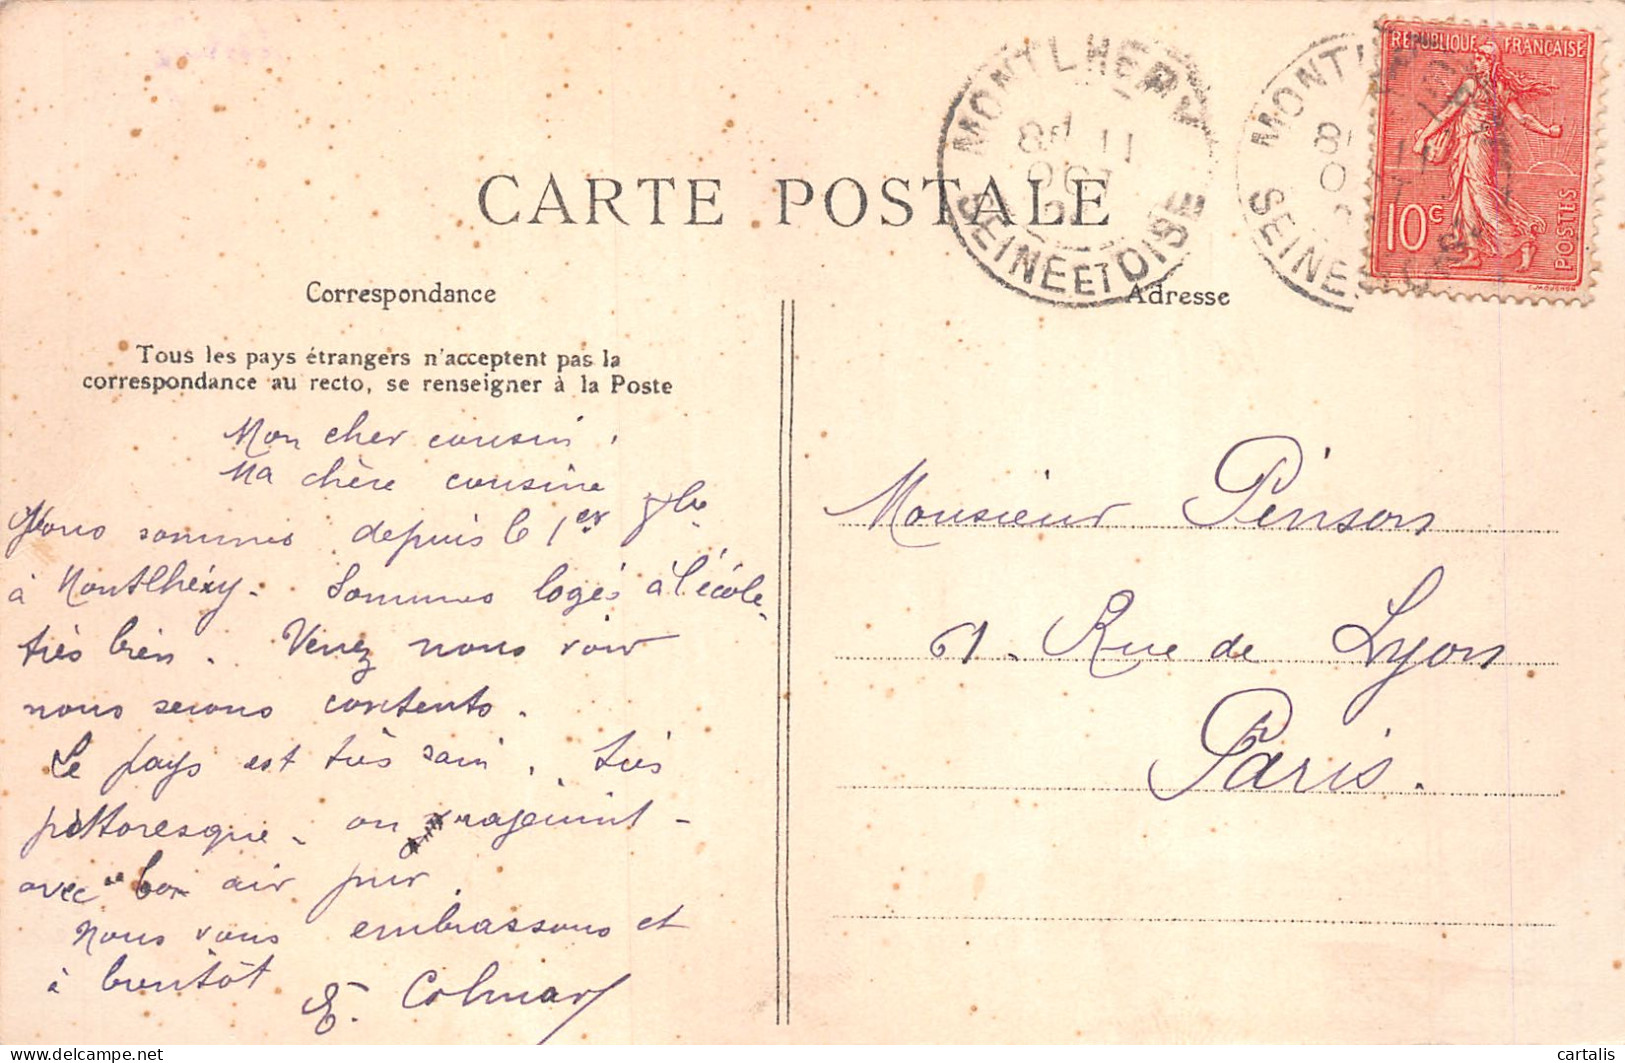 CARTE POSTALE
MONTLHERY
8H 11
OCT
SEINE ET OISE
MONTLHERY
8H 11
OCT
SEINE ET OISE
REPUBLIQUE FRANÇAISE
10c
POSTES
Correspondance
Adresse
Tous les pays étrangers n'acceptent pas la
correspondance au recto, se renseigner à la Poste
Mon cher cousin,
Ma chère cousine
Nous sommes depuis le 1er
à Montlhéry. Sommes logés à l'école,
très bien. Venez nous voir
nous serons contents.
Le pays est très sain, très
pittoresque, on rajeunit -
avec bon air pur.
Nous vous embrassons et
à bientôt
E. Colmar
Monsieur Pinson
61. Rue de Lyon
Paris.
cartalis